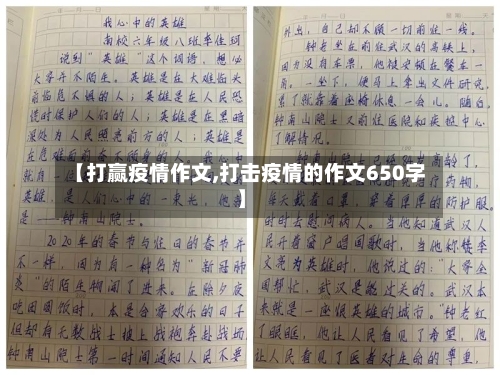 我心中的英雄
南校六年级八班李佳珂
说到"英雄"这个词语,想必
大家并不陌生。英雄是在大难临头
前临危不惧的人;英雄是在人民恐
慌时保护人们的人;英雄是在黑暗
深处为人民照亮前方的人;英雄是
在危难面前
就是
英雄,是人们心中的一束光,他就
是——钟南山院士。
2020年的春节与往日的春节并
不一样,因为有一种名为"新冠肺
炎"的陌生物闯了进来。在除夕夜
吃团圆饭时,本是合家欢乐的日子
但却有无数战士披上战袍奔赴战场
钟南山院士第一时间通知人民不要
外出,自己却不顾一切前往一线。
钟老坐在前往武汉的高铁上,
因为没有车票,他被安顿在餐车一
角。一坐下,便马上拿出文件研究,
累了就靠着座椅休息一会儿。随后,
钟南山院士又前往医院和疾控中心
了解情况。
高龄了,
疗药物,
每天戴着口罩,穿着厚厚的防护服,
时时去慰问病人。当他知道武汉人
民开着窗户唱国歌时,当他称赞李
文亮为英雄时,他说过的:"大家全
国帮忙,武汉是能过关的。武汉本
来就是一座很英雄的城市。"钟老红
了眼眶,他让人民看见了希望,他
让人民看见了医者对生命的尊重,
【打赢疫情作文,打击疫情的作文650字
】